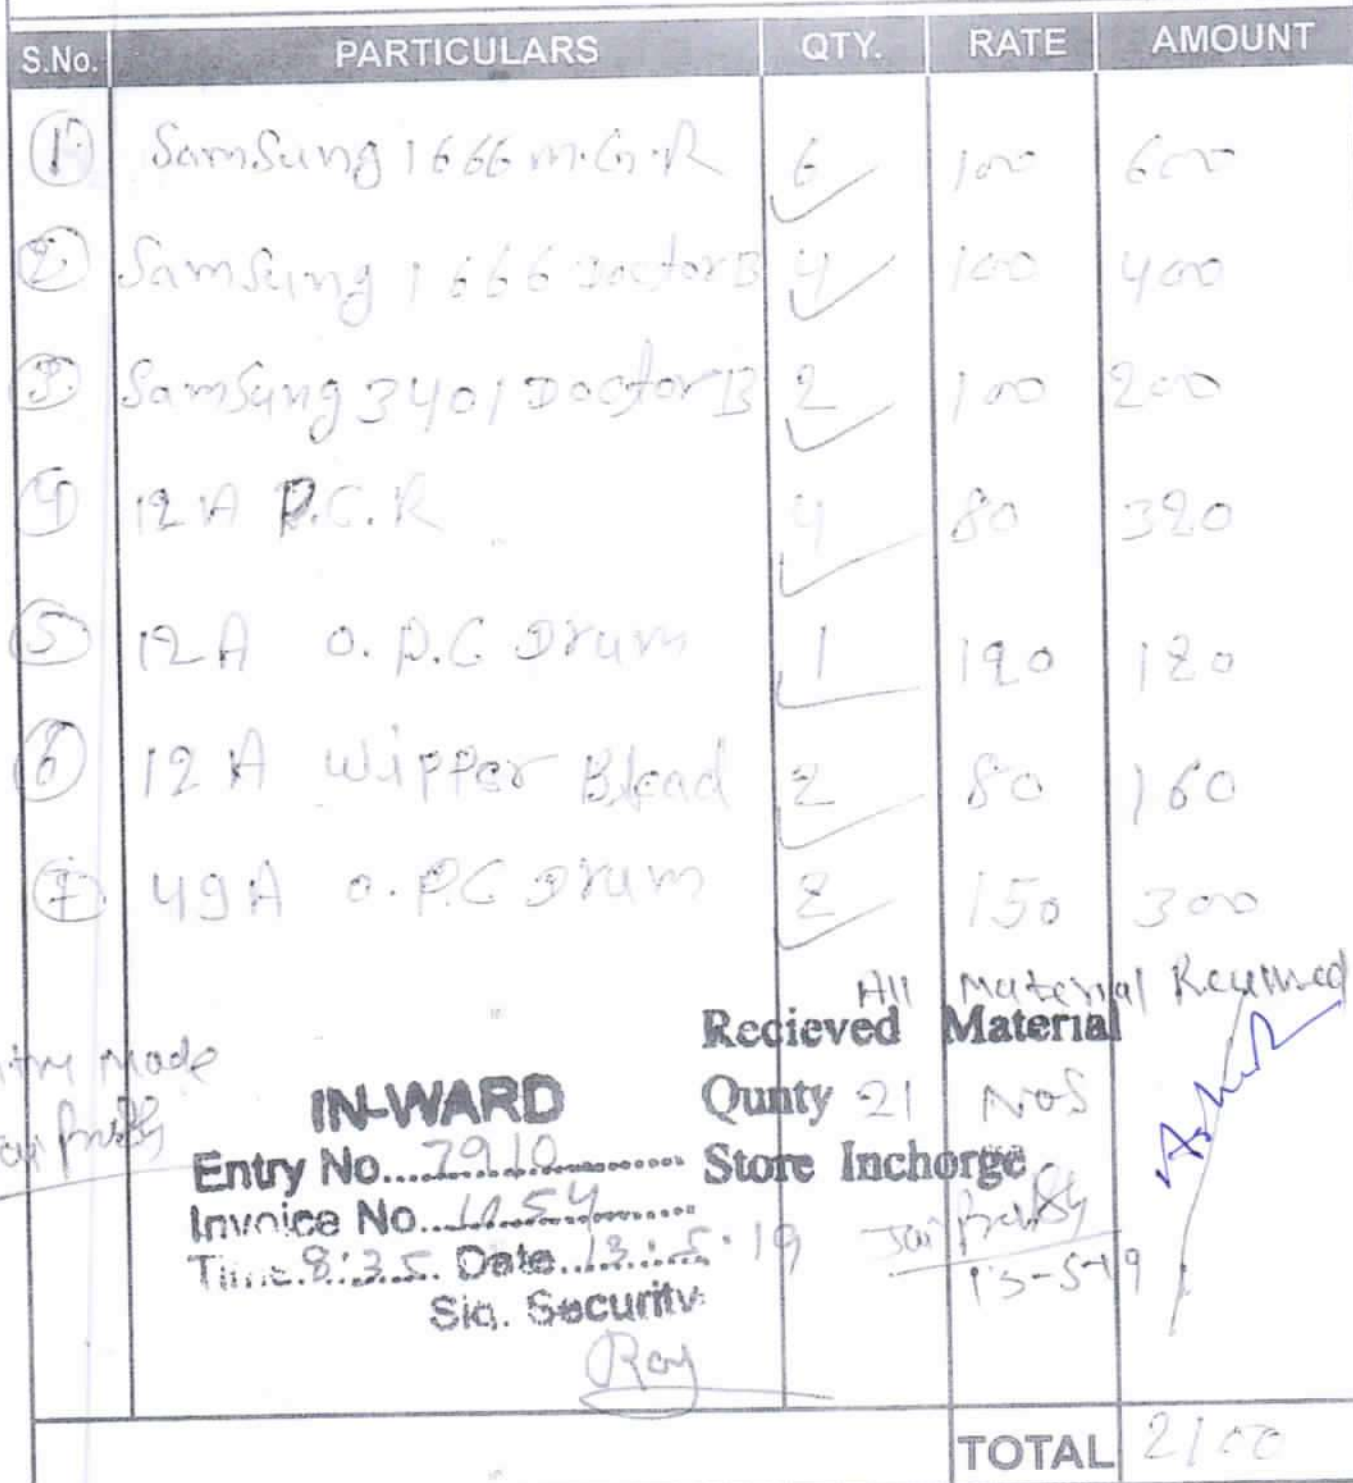 S.No. PARTICULARS QTY. RATE AMOUNT
1 Samsung 1666 m.G.R 6 100 600
2 Samsung 1666 Doctor B 4 100 400
3 Samsung 3401 Doctor B 2 100 200
4 12A P.C.R 4 80 320
5 12A O.P.C Drum 1 120 120
6 12A Wipper Blead 2 80 160
7 49A O.P.C Drum 2 150 300
All Material Received
Recieved Material
Made
IN-WARD
Qunty 21 NOS
Entry No. 7910
Store Inchorge
Invoice No. 1154
Time 8:35 Date 13.5.19
13-5-19
Sig. Security
Roy
TOTAL 2100